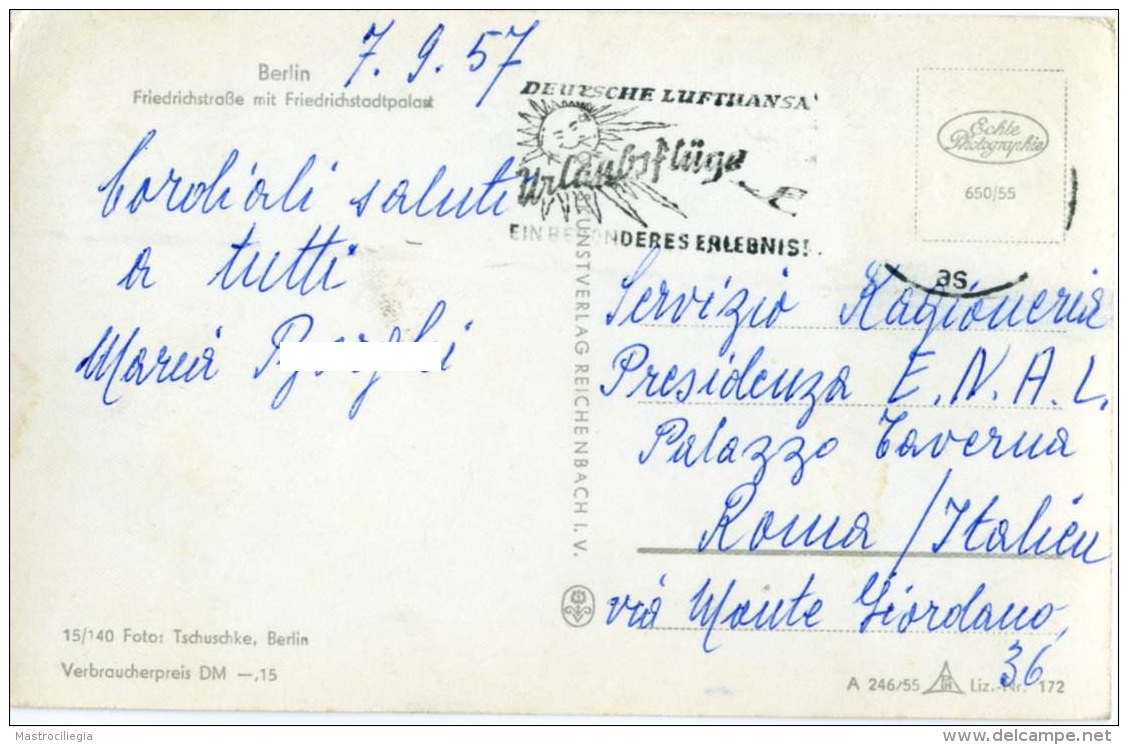 7. 9. 57
Berlin
Friedrichstraße mit Friedrichstadtpalast
DEUTSCHE LUFTHANSA
Urlaubsflüge
EIN BESONDERES ERLEBNIS!
Echte
Photographie
650/55
Cordiali saluti
a tutti
Maria
as
Servizio Ragioneria
Presidenza E.N.A.L.
Palazzo Taverna
Roma / Italien
via Monte Giordano,
36
KUNSTVERLAG REICHENBACH I. V.
15/140 Foto: Tschuschke, Berlin
Verbraucherpreis DM —,15
A 246/55 Liz.-Nr. 172
Mastrociliegia
www.delcampe.net